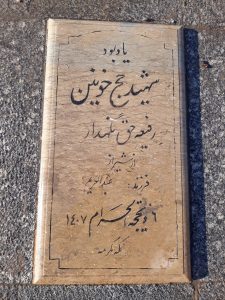 یادبود
شهید حج خونین
رفیعه حق نگهدار
از شیراز
فرزند:
۶ ذیحجه الحرام ۱۴۰۷
مکه مکرمه